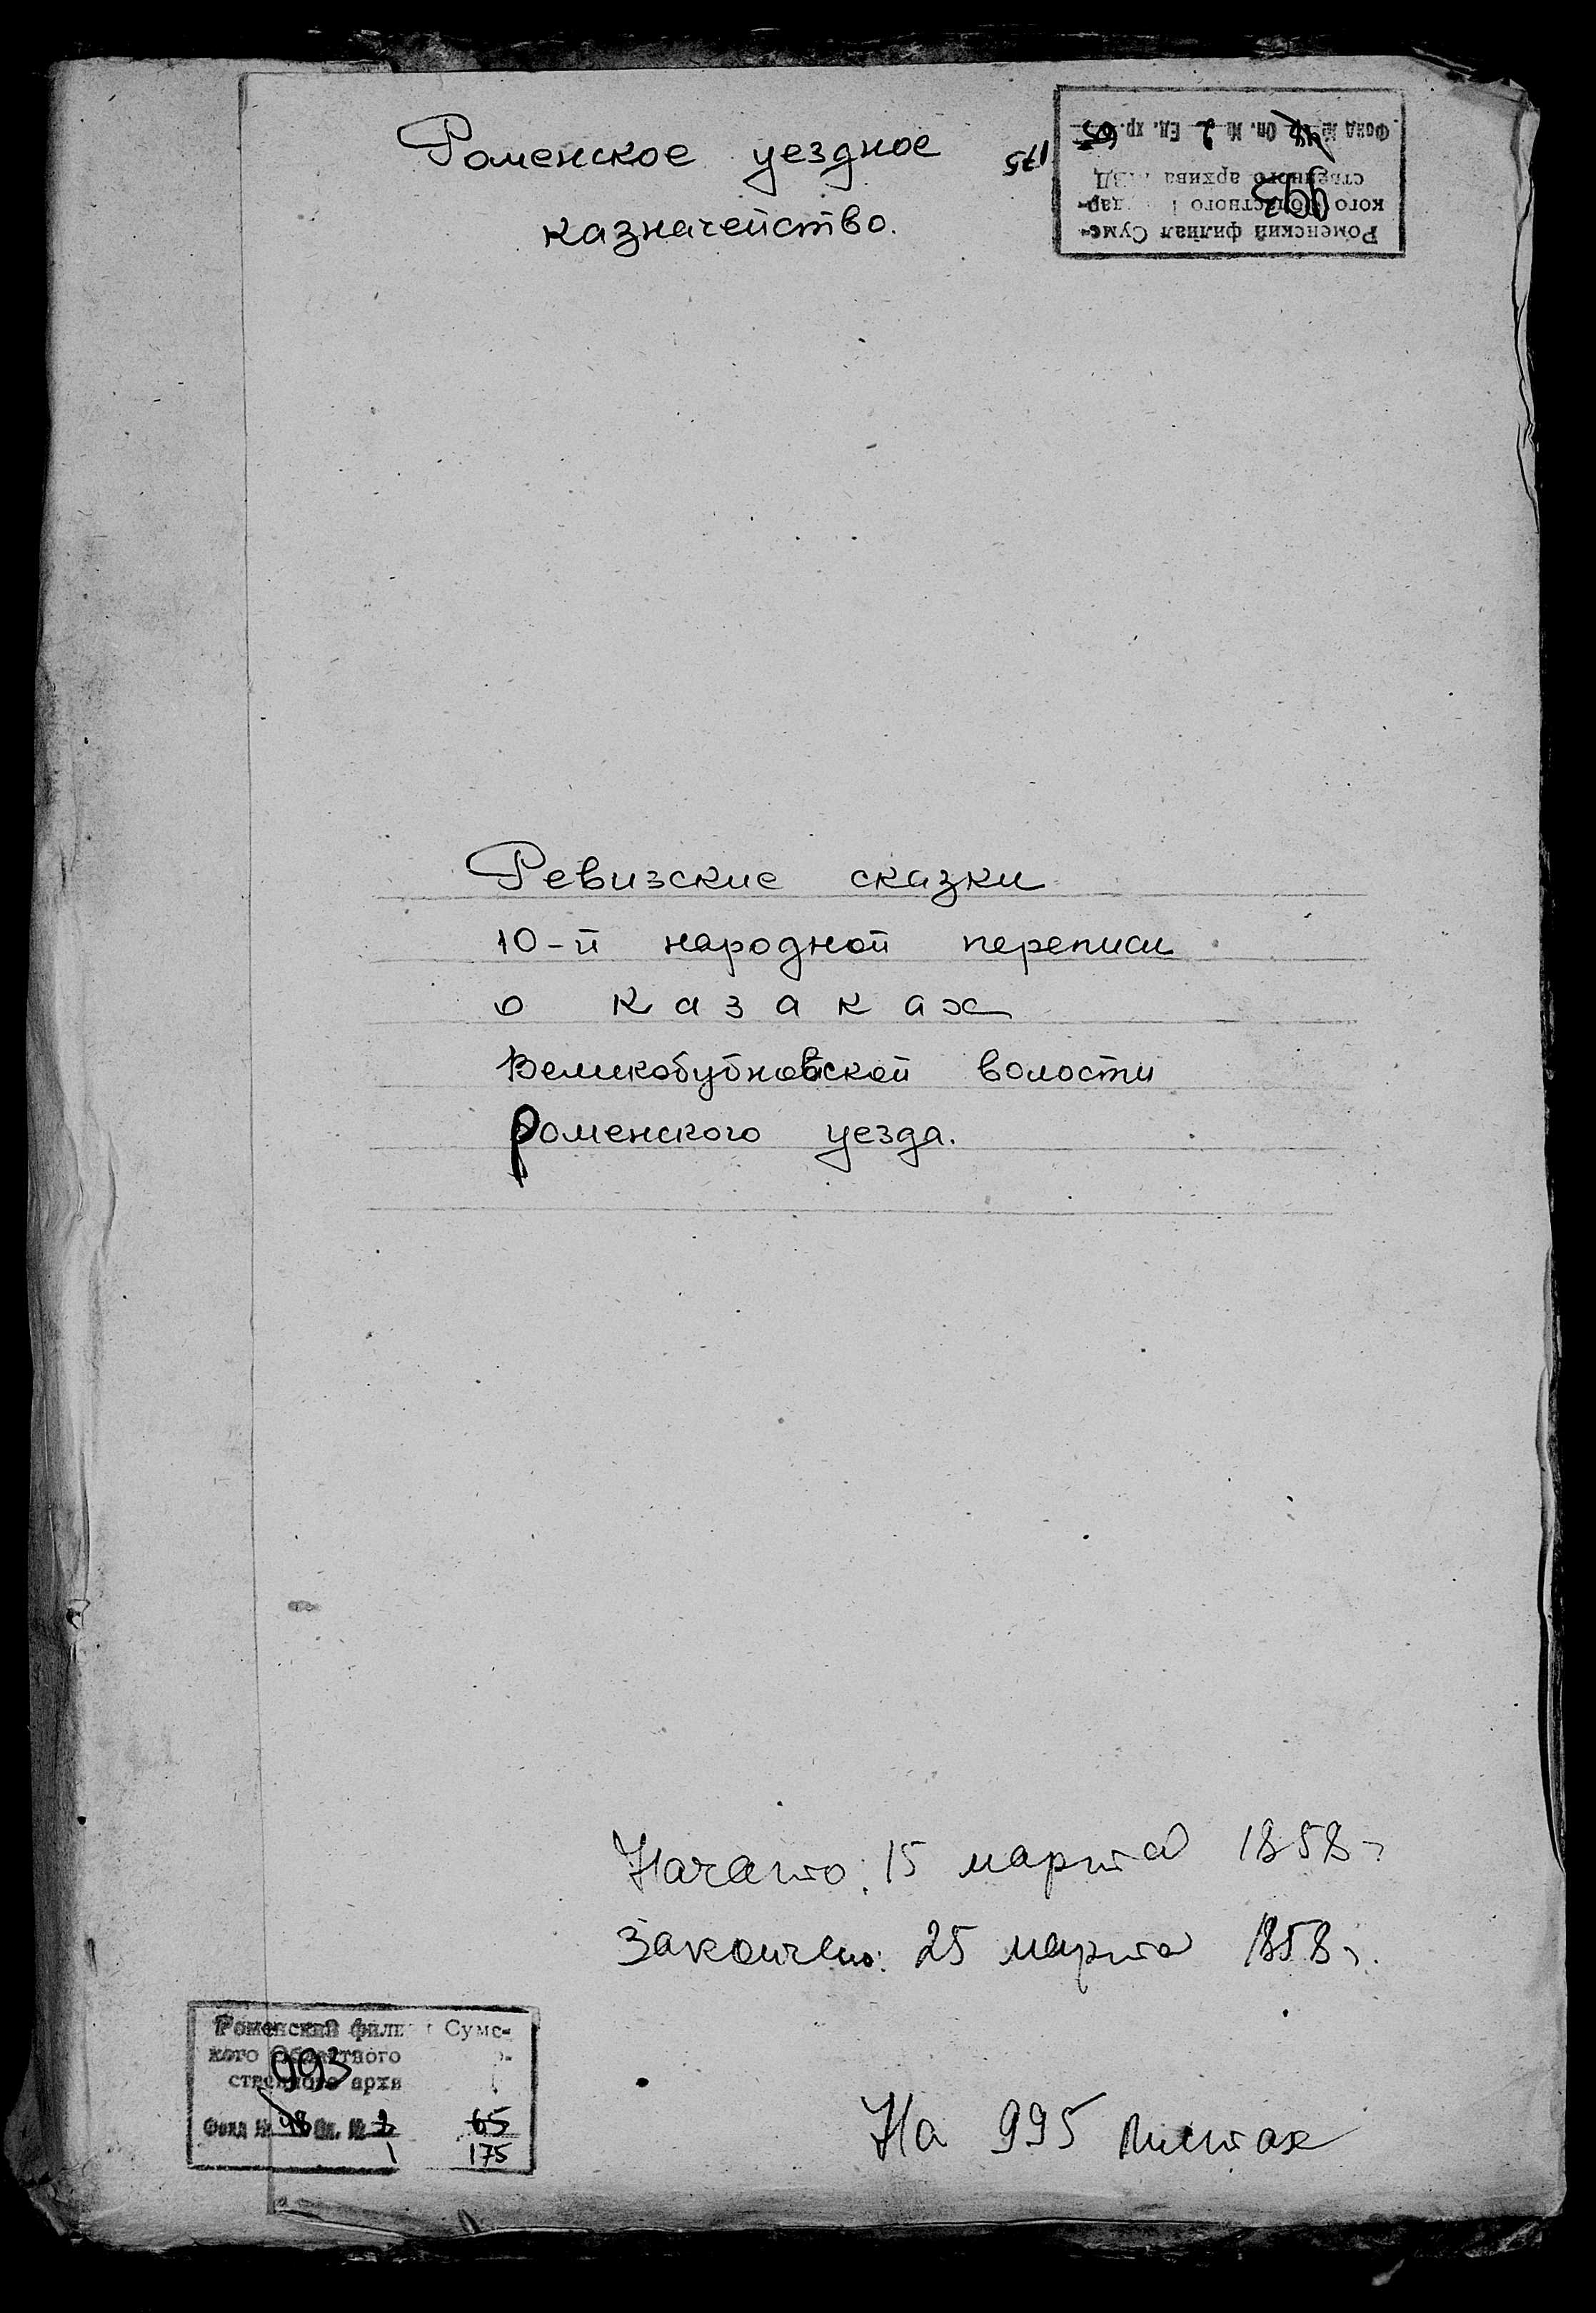 Роменское уездное
казначейство.
175
Роменский филиал Сумс-
кого областного дар-
ственного архива
993
Фонд № 48 Оп. № 2 Ед. хр. 65
Ревизские сказки
10-й народной переписи
о казаках
Великобубновской волости
Роменского уезда.
Начато: 15 марта 1858 г
Закончено: 25 марта 1858 г.
На 995 листах
Роменский фили Сумс-
кого Областного
ственного архи
993
Фонд № 48 Оп. № 2 65
1 175